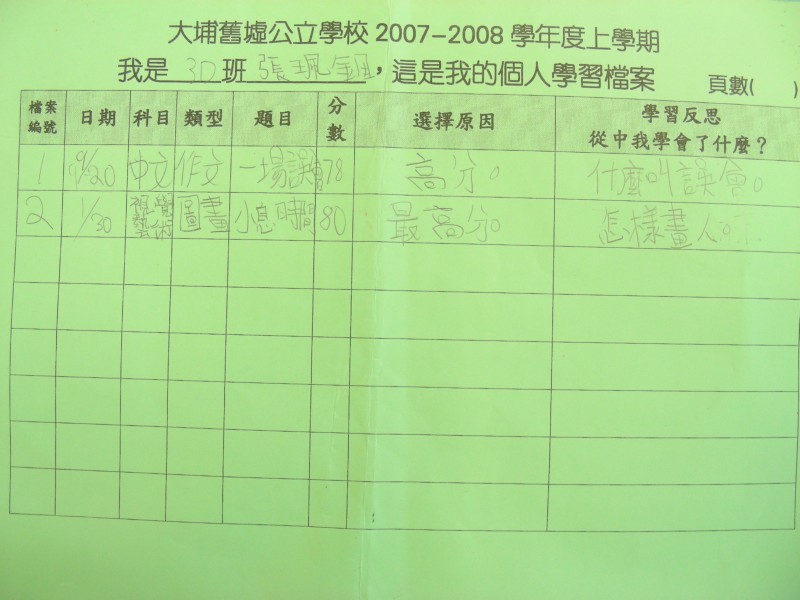 大埔舊墟公立學校 2007-2008 學年度上學期
我是 3D 班 張珮鈿，這是我的個人學習檔案 頁數( )
檔案編號 日期 科目 類型 題目 分數 選擇原因 學習反思 從中我學會了什麼？
1 9/20 中文 作文 一場誤會 78 高分。 什麼叫誤會。
2 1/30 視覺藝術 圖畫 小息時間 80 最高分。 怎樣畫人。